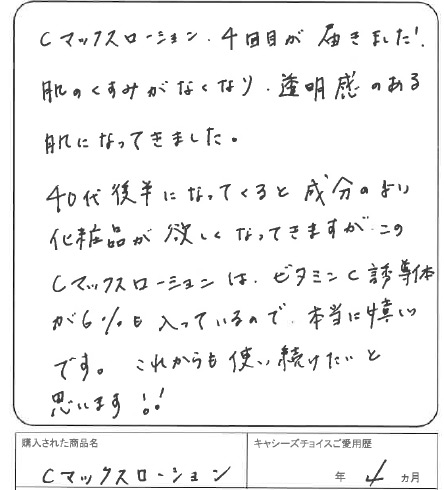 Cマックスローション、4回目が届きました!
肌のくすみがなくなり、透明感のある
肌になってきました。
40代後半になってくると成分のより
化粧品が欲しくなってきますが、この
Cマックスローションは、ビタミンC誘導体
が6%も入っているので、本当に嬉しい
です。これからも使い続けたいと
思います!!
購入された商品名
キャシーズチョイスご愛用歴
Cマックスローション
年 4 カ月